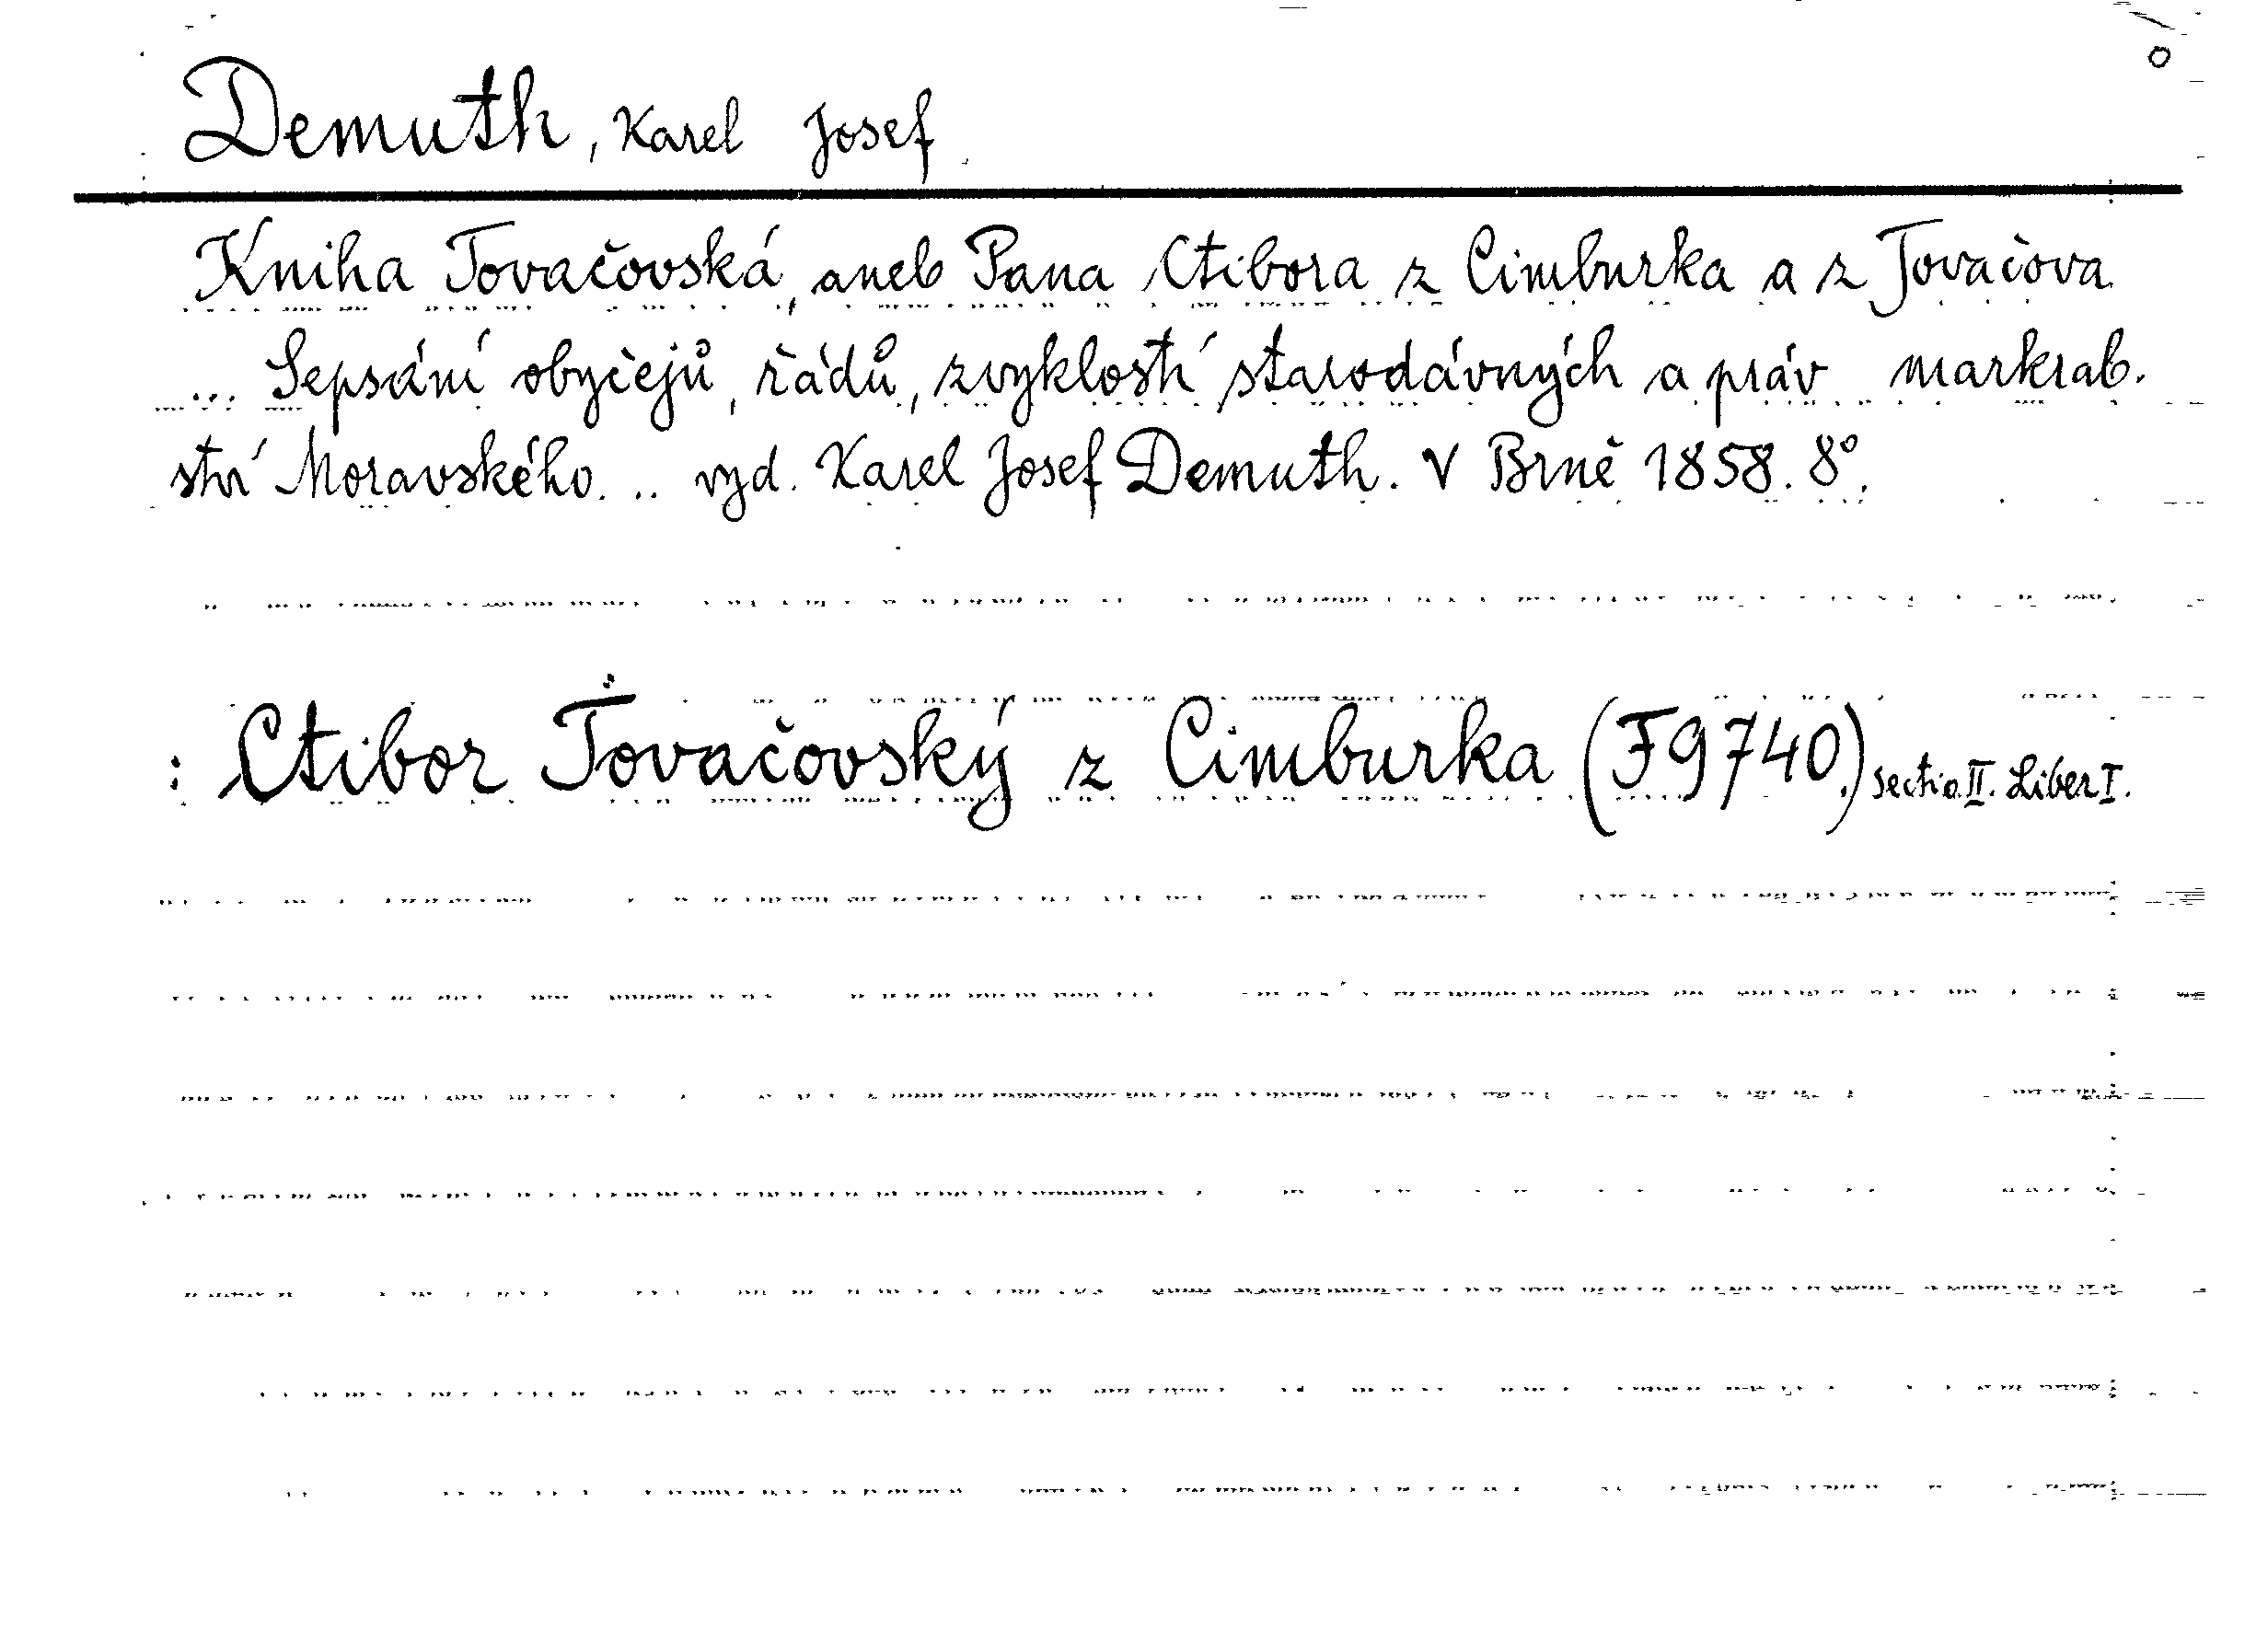 Demuth, Karel Josef
Kniha Tovačovská, aneb Pana Ctibora z Cimburka a z Tovačova
... Sepsání obyčejů, řádů, zvyklostí starodávných a práv markrab-
ství Moravského... vyd. Karel Josef Demuth. V Brně 1858. 8°.
: Ctibor Tovačovský z Cimburka (F9740.) Sectio II. Liber I.